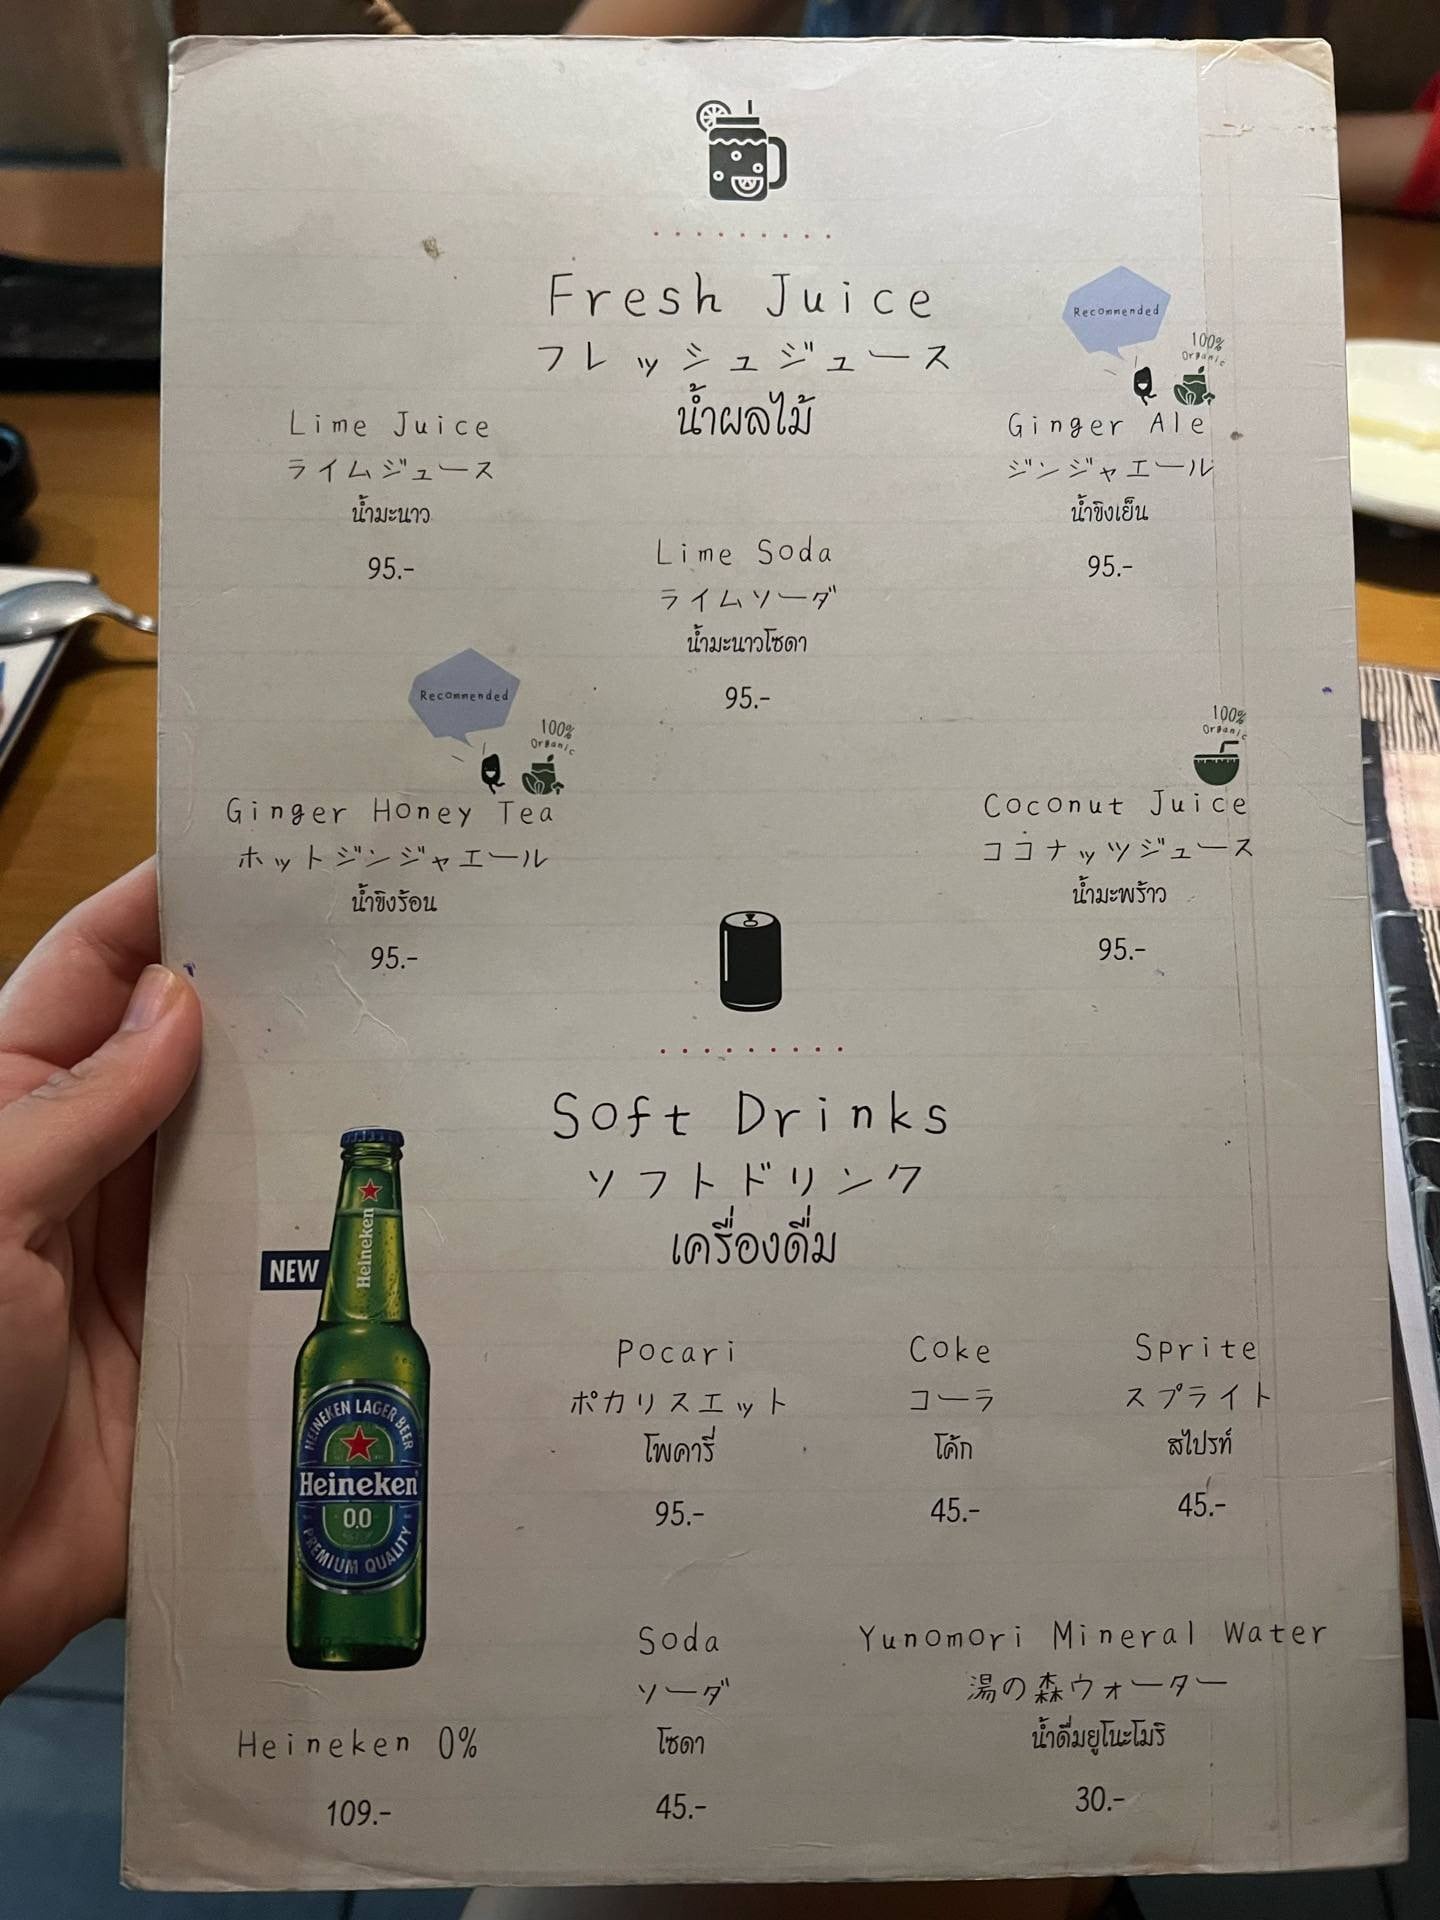 Fresh Juice
フレッシュジュース
น้ำผลไม้
Lime Juice
ライムジュース
น้ำมะนาว
95.-
Recommended
100%
Organic
Ginger Ale
ジンジャエール
น้ำขิงเย็น
95.-
Lime Soda
ライムソーダ
น้ำมะนาวโซดา
95.-
Recommended
100%
Organic
Ginger Honey Tea
ホットジンジャエール
น้ำขิงร้อน
95.-
100%
Organic
Coconut Juice
ココナッツジュース
น้ำมะพร้าว
95.-
Soft Drinks
ソフトドリンク
เครื่องดื่ม
NEW
Heineken
HEINEKEN LAGER BEER
Heineken
0.0
PREMIUM QUALITY
Heineken 0%
109.-
Pocari
ポカリスエット
โพคารี่
95.-
Coke
コーラ
โค้ก
45.-
Sprite
スプライト
สไปรท์
45.-
Soda
ソーダ
โซดา
45.-
Yunomori Mineral Water
湯の森ウォーター
น้ำดื่มยูโนะโมริ
30.-